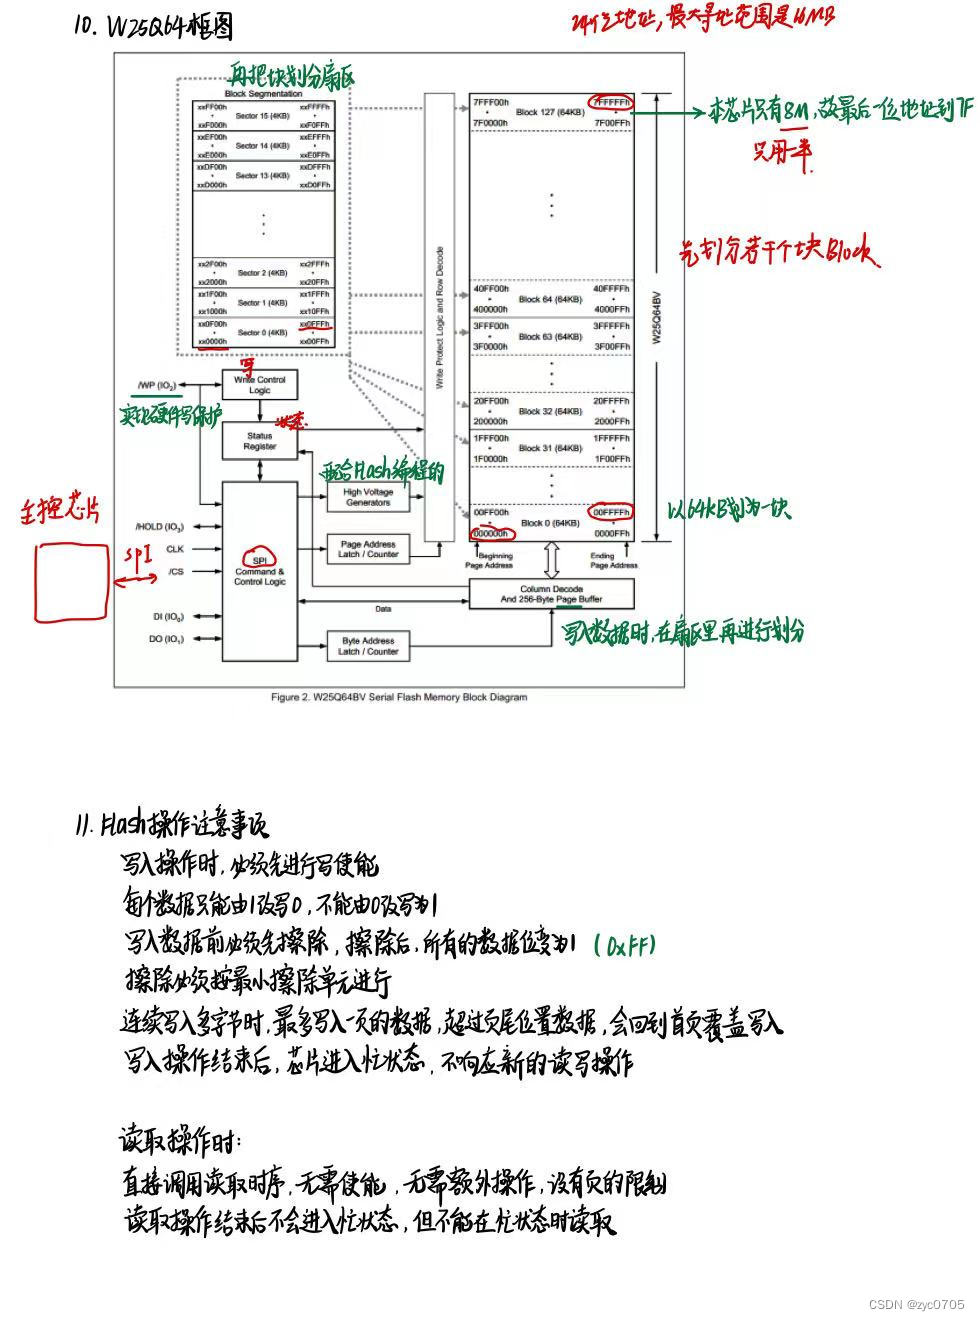 10. W25Q64框图
24位地址，最大寻址范围是16MB
再把块划分扇区
Block Segmentation
xxFF00h xxFFFFh
Sector 15 (4KB)
xxF000h xxF0FFh
xxEF00h xxEFFFh
Sector 14 (4KB)
xxE000h xxE0FFh
xxDF00h xxDFFFh
Sector 13 (4KB)
xxD000h xxD0FFh
xx2F00h xx2FFFh
Sector 2 (4KB)
xx2000h xx20FFh
xx1F00h xx1FFFh
Sector 1 (4KB)
xx1000h xx10FFh
xx0F00h xx0FFFh
Sector 0 (4KB)
xx0000h xx00FFh
Write Protect Logic and Row Decode
7FFF00h 7FFFFFh
Block 127 (64KB)
7F0000h 7F00FFh
本芯片只有8M，故最后一位地址到7F
只用一半
先划分若干个块Block
40FF00h 40FFFFh
Block 64 (64KB)
400000h 4000FFh
3FFF00h 3FFFFFh
Block 63 (64KB)
3F0000h 3F00FFh
20FF00h 20FFFFh
Block 32 (64KB)
200000h 2000FFh
1FFF00h 1FFFFFh
Block 31 (64KB)
1F0000h 1F00FFh
00FF00h 00FFFFh
Block 0 (64KB)
000000h 0000FFh
W25Q64BV
以64kB划为一块
Beginning
Page Address
Ending
Page Address
写
/WP (IO2)
Write Control
Logic
实现硬件写保护
状态
Status
Register
配合Flash编程的
High Voltage
Generators
主控芯片
SPI
/HOLD (IO3)
CLK
/CS
DI (IO0)
DO (IO1)
SPI
Command &
Control Logic
Page Address
Latch / Counter
Column Decode
And 256-Byte Page Buffer
Data
写入数据时，在扇区里再进行划分
Byte Address
Latch / Counter
Figure 2. W25Q64BV Serial Flash Memory Block Diagram
11. Flash操作注意事项
写入操作时，必须先进行写使能
每个数据只能由1改写0，不能由0改写为1
写入数据前必须先擦除，擦除后，所有的数据位变为1 (0xFF)
擦除必须按最小擦除单元进行
连续写入多字节时，最多写入一页的数据，超过页尾位置数据，会回到首页覆盖写入
写入操作结束后，芯片进入忙状态，不响应新的读写操作
读取操作时：
直接调用读取时序，无需使能，无需额外操作，没有页的限制
读取操作结束后不会进入忙状态，但不能在忙状态时读取
CSDN @zyc0705